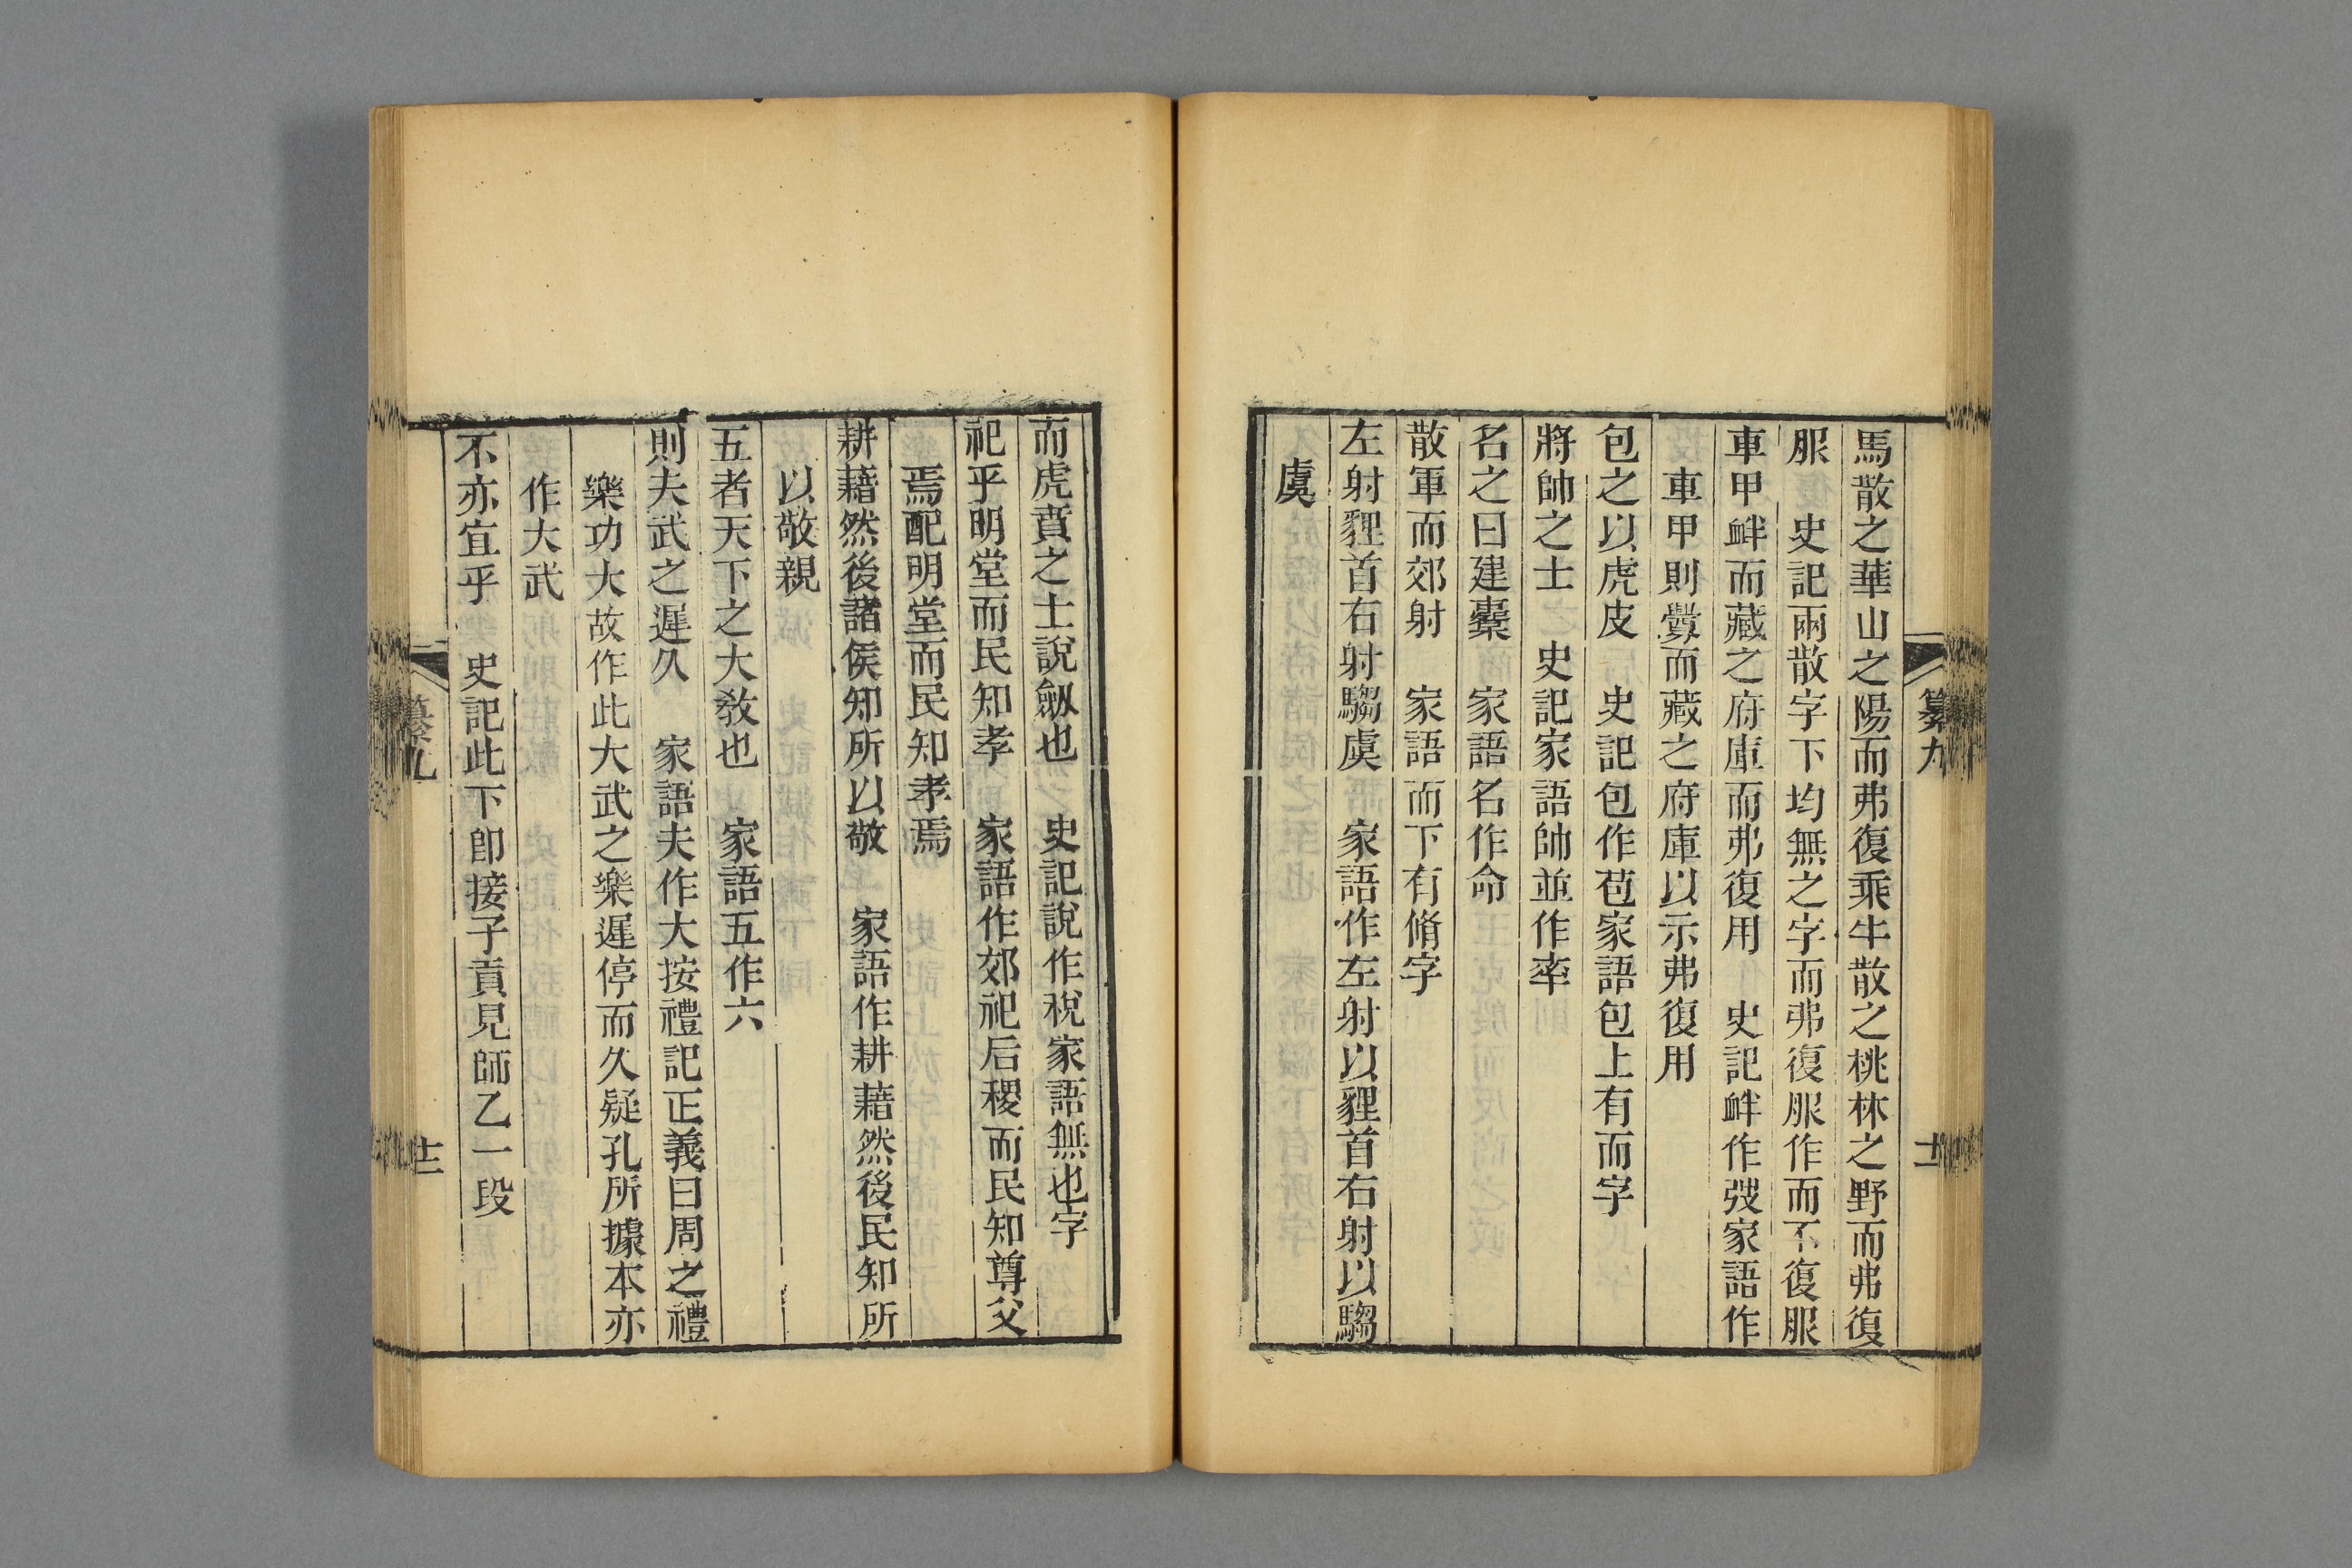 馬散之華山之陽而弗復乘牛散之桃林之野而弗復
服　史記兩散字下均無之字而弗復服作而不復服
車甲衅而藏之府庫而弗復用　史記衅作弢家語作
車甲則釁而藏之府庫以示弗復用
包之以虎皮　史記包作苞家語包上有而字
將帥之士　史記家語帥並作率
名之曰建櫜　家語名作命
散軍而郊射　家語而下有脩字
左射貍首右射騶虞　家語作左射以貍首右射以騶
虞
纂九
十二
而虎賁之士說劒也　史記說作稅家語無也字
祀乎明堂而民知孝　家語作郊祀后稷而民知尊父
焉配明堂而民知孝焉
耕藉然後諸侯知所以敬　家語作耕藉然後民知所
以敬親
五者天下之大敎也　家語五作六
則夫武之遲久　家語夫作大按禮記正義曰周之禮
樂功大故作此大武之樂遲停而久疑孔所據本亦
作大武
不亦宜乎　史記此下卽接子貢見師乙一段
纂九
十三